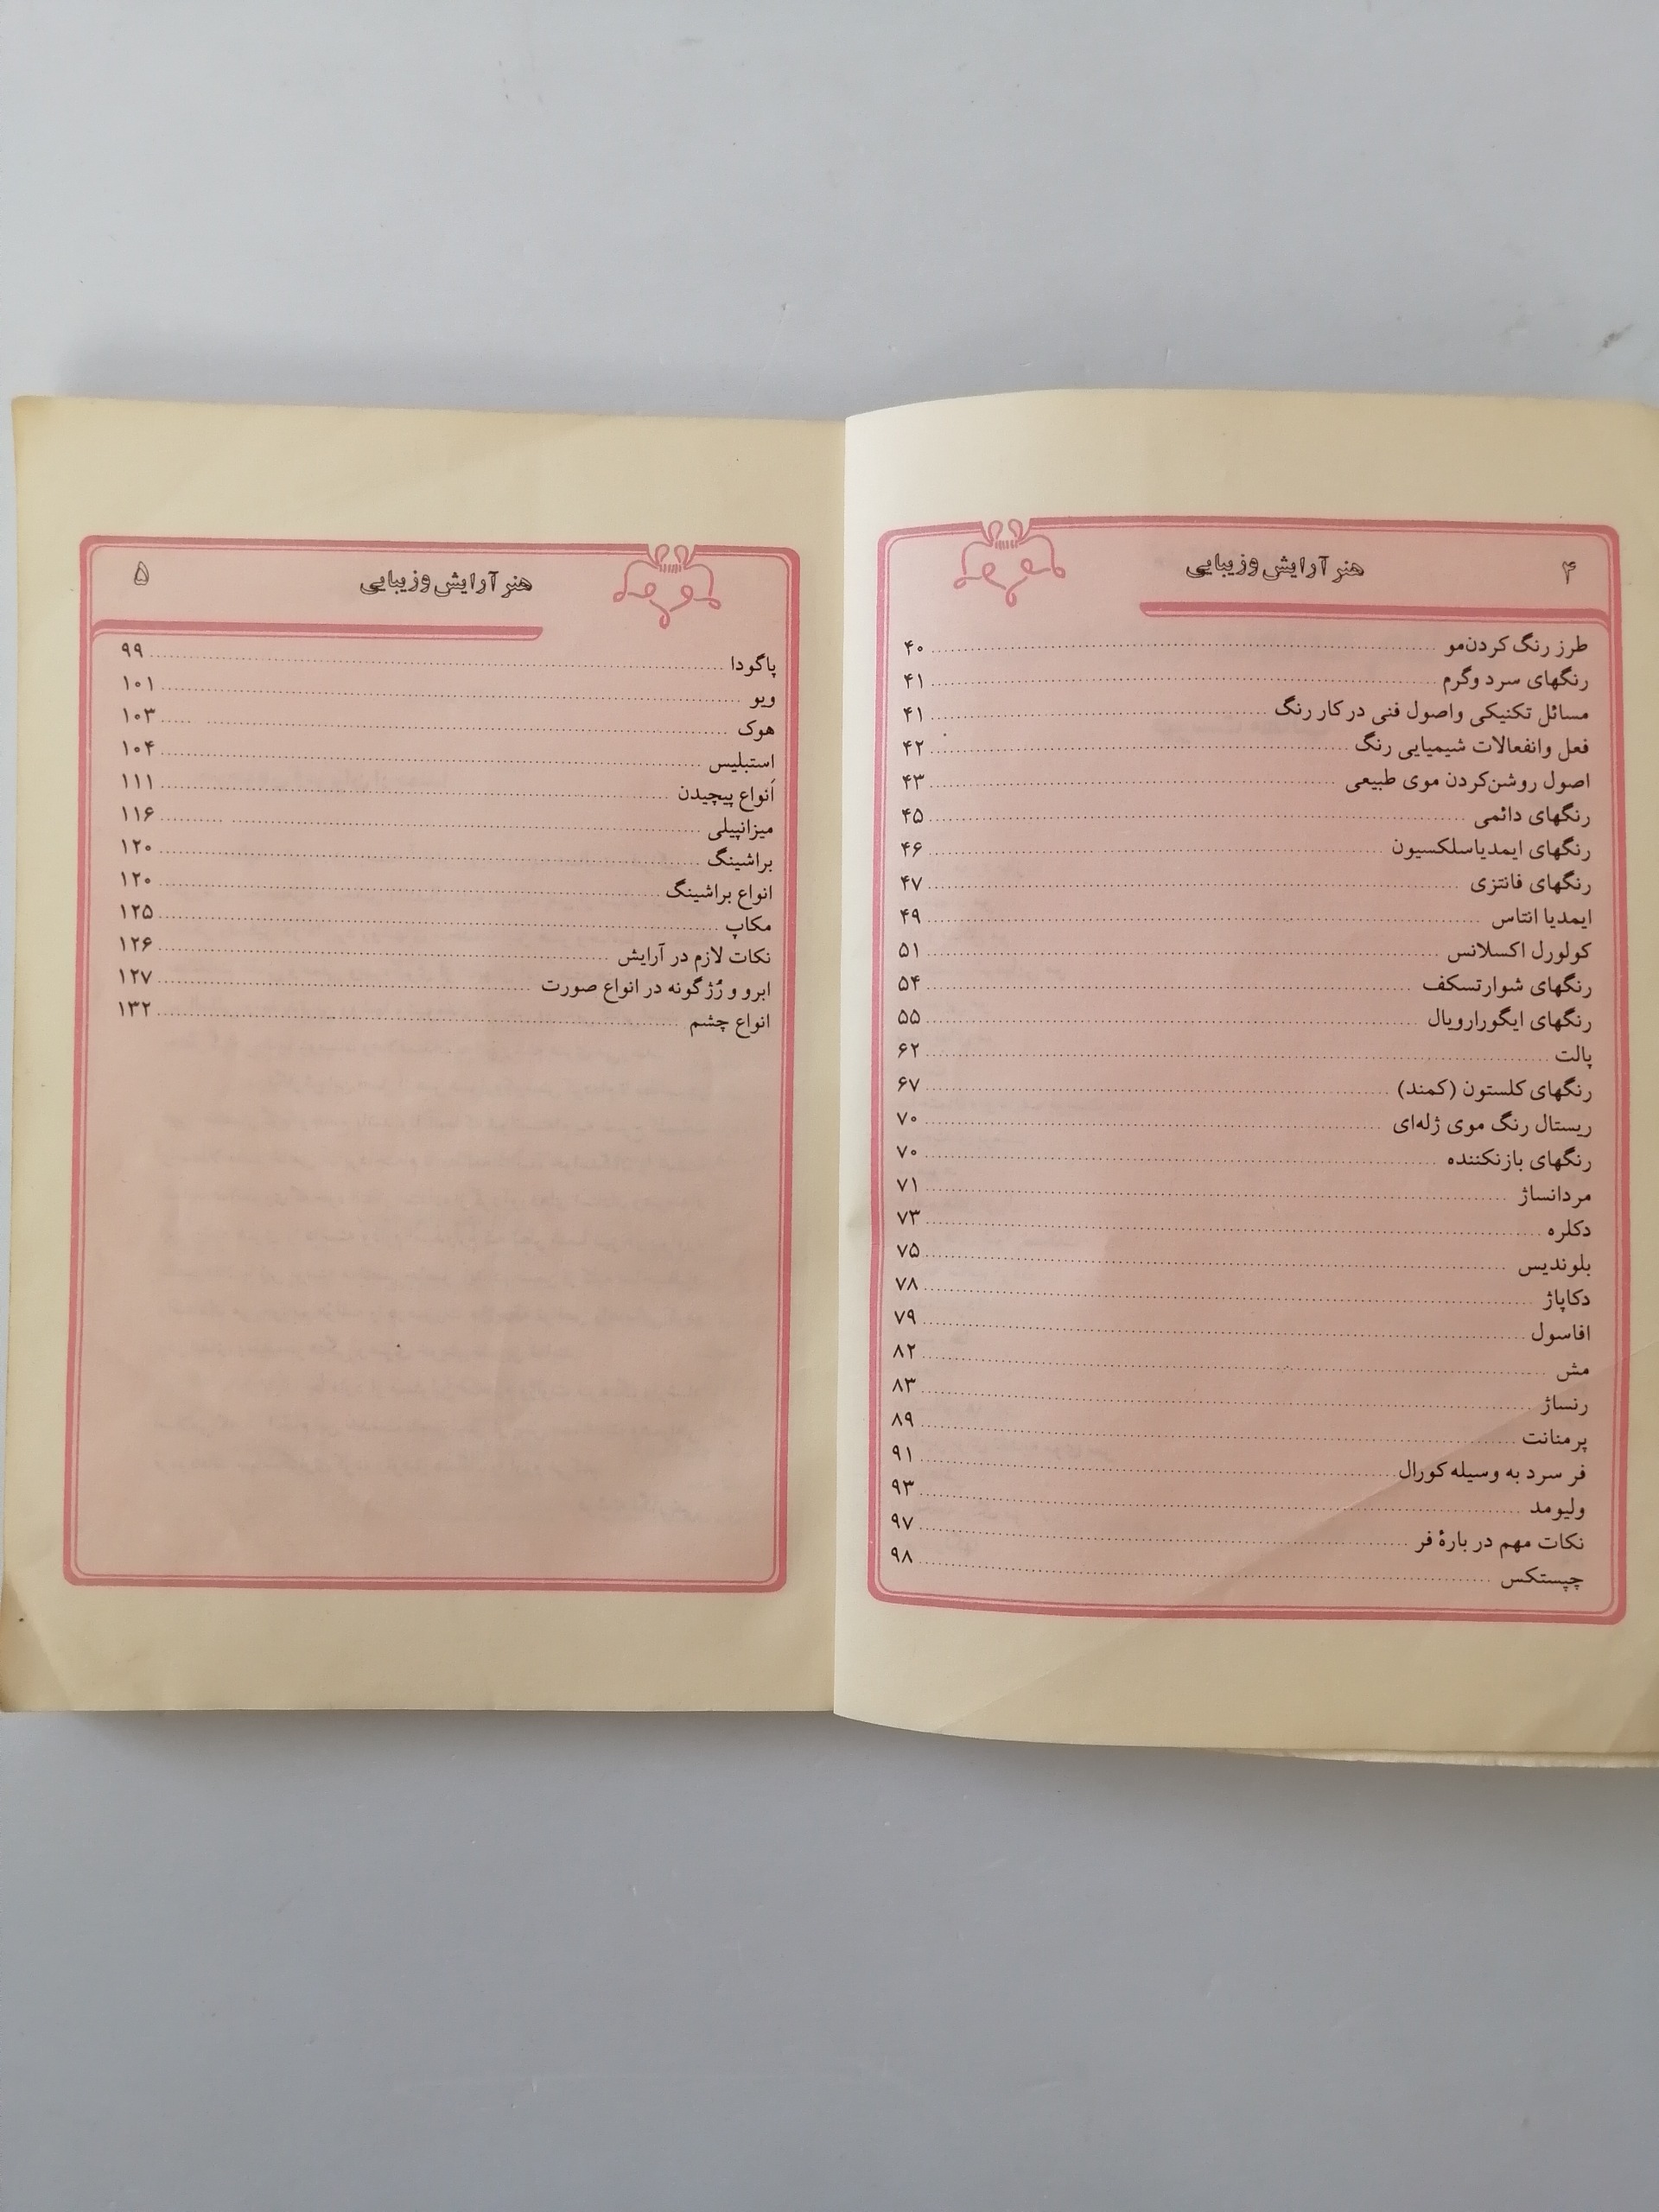 ۴
هنر آرایش وزیبایی
طرز رنگ کردن‌مو ۴۰
رنگهای سرد وگرم ۴۱
مسائل تکنیکی واصول فنی در کار رنگ ۴۱
فعل وانفعالات شیمیایی رنگ ۴۲
اصول روشن‌کردن موی طبیعی ۴۳
رنگهای دائمی ۴۵
رنگهای ایمدیاسلکسیون ۴۶
رنگهای فانتزی ۴۷
ایمدیا انتاس ۴۹
کولورل اکسلانس ۵۱
رنگهای شوارتسکف ۵۴
رنگهای ایگورارویال ۵۵
پالت ۶۲
رنگهای کلستون (کمند) ۶۷
ریستال رنگ موی ژله‌ای ۷۰
رنگهای بازنکننده ۷۰
مردانساژ ۷۱
دکلره ۷۳
بلوندیس ۷۵
دکاپاژ ۷۸
افاسول ۷۹
مش ۸۲
رنساژ ۸۳
پرمنانت ۸۹
فر سرد به وسیله کورال ۹۱
ولیومد ۹۳
نکات مهم در بارهٔ فر ۹۷
چپستکس ۹۸
هنر آرایش وزیبایی
۵
پاگودا ۹۹
ویو ۱۰۱
هوک ۱۰۳
استبلیس ۱۰۴
اَنواع پیچیدن ۱۱۱
میزانپیلی ۱۱۶
براشینگ ۱۲۰
انواع براشینگ ۱۲۰
مکاپ ۱۲۵
نکات لازم در آرایش ۱۲۶
ابرو و رُژگونه در انواع صورت ۱۲۷
انواع چشم ۱۳۲